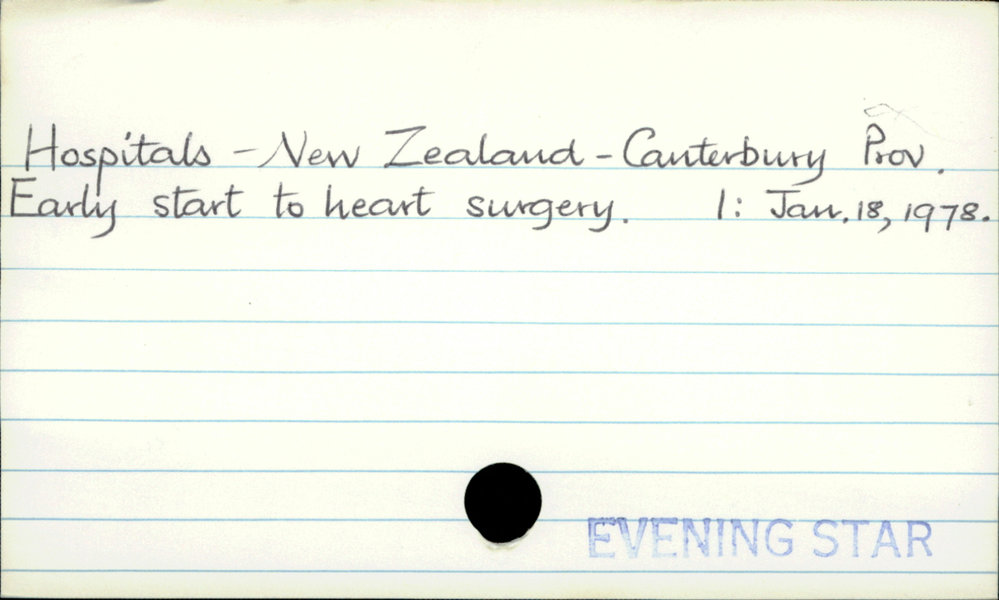 Hospitals - New Zealand - Canterbury Prov.
Early start to heart surgery. 1: Jan. 18, 1978.
EVENING STAR